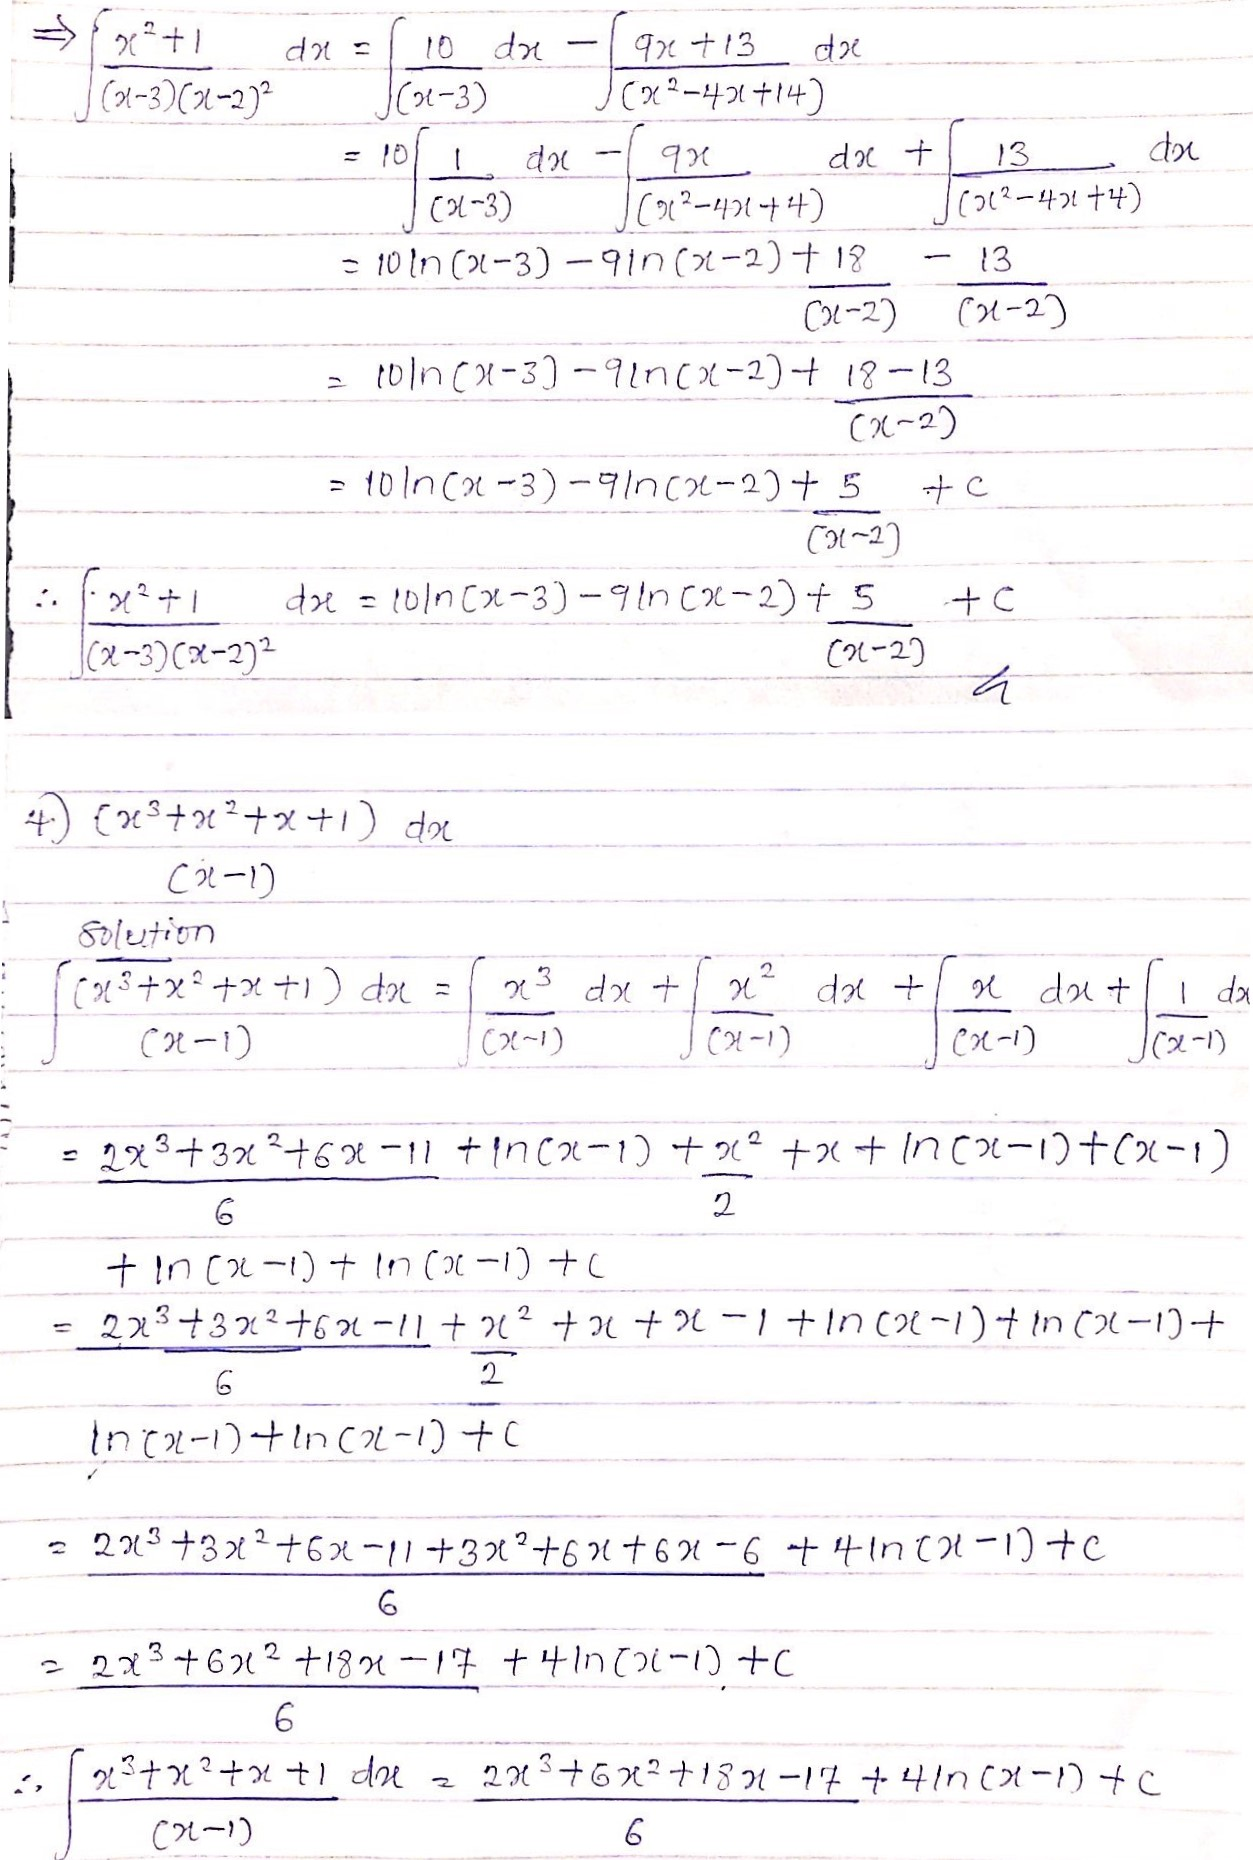 ⇒ ∫ (x²+1)/((x-3)(x-2)²) dx = ∫ 10/(x-3) dx - ∫ (9x+13)/(x²-4x+14) dx
= 10∫ 1/(x-3) dx - ∫ 9x/(x²-4x+4) dx + ∫ 13/(x²-4x+4) dx
= 10ln(x-3) - 9ln(x-2) + 18/(x-2) - 13/(x-2)
= 10ln(x-3) - 9ln(x-2) + (18-13)/(x-2)
= 10ln(x-3) - 9ln(x-2) + 5/(x-2) + c
∴ ∫ (x²+1)/((x-3)(x-2)²) dx = 10ln(x-3) - 9ln(x-2) + 5/(x-2) + c
4.) (x³+x²+x+1)/(x-1) dx
Solution
∫ (x³+x²+x+1)/(x-1) dx = ∫ x³/(x-1) dx + ∫ x²/(x-1) dx + ∫ x/(x-1) dx + ∫ 1/(x-1) dx
= (2x³+3x²+6x-11)/6 + ln(x-1) + x²/2 + x + ln(x-1) + (x-1)
+ ln(x-1) + ln(x-1) + c
= (2x³+3x²+6x-11)/6 + x²/2 + x + x - 1 + ln(x-1) + ln(x-1) +
ln(x-1) + ln(x-1) + c
= (2x³+3x²+6x-11+3x²+6x+6x-6)/6 + 4ln(x-1) + c
= (2x³+6x²+18x-17)/6 + 4ln(x-1) + c
∴ ∫ (x³+x²+x+1)/(x-1) dx = (2x³+6x²+18x-17)/6 + 4ln(x-1) + c